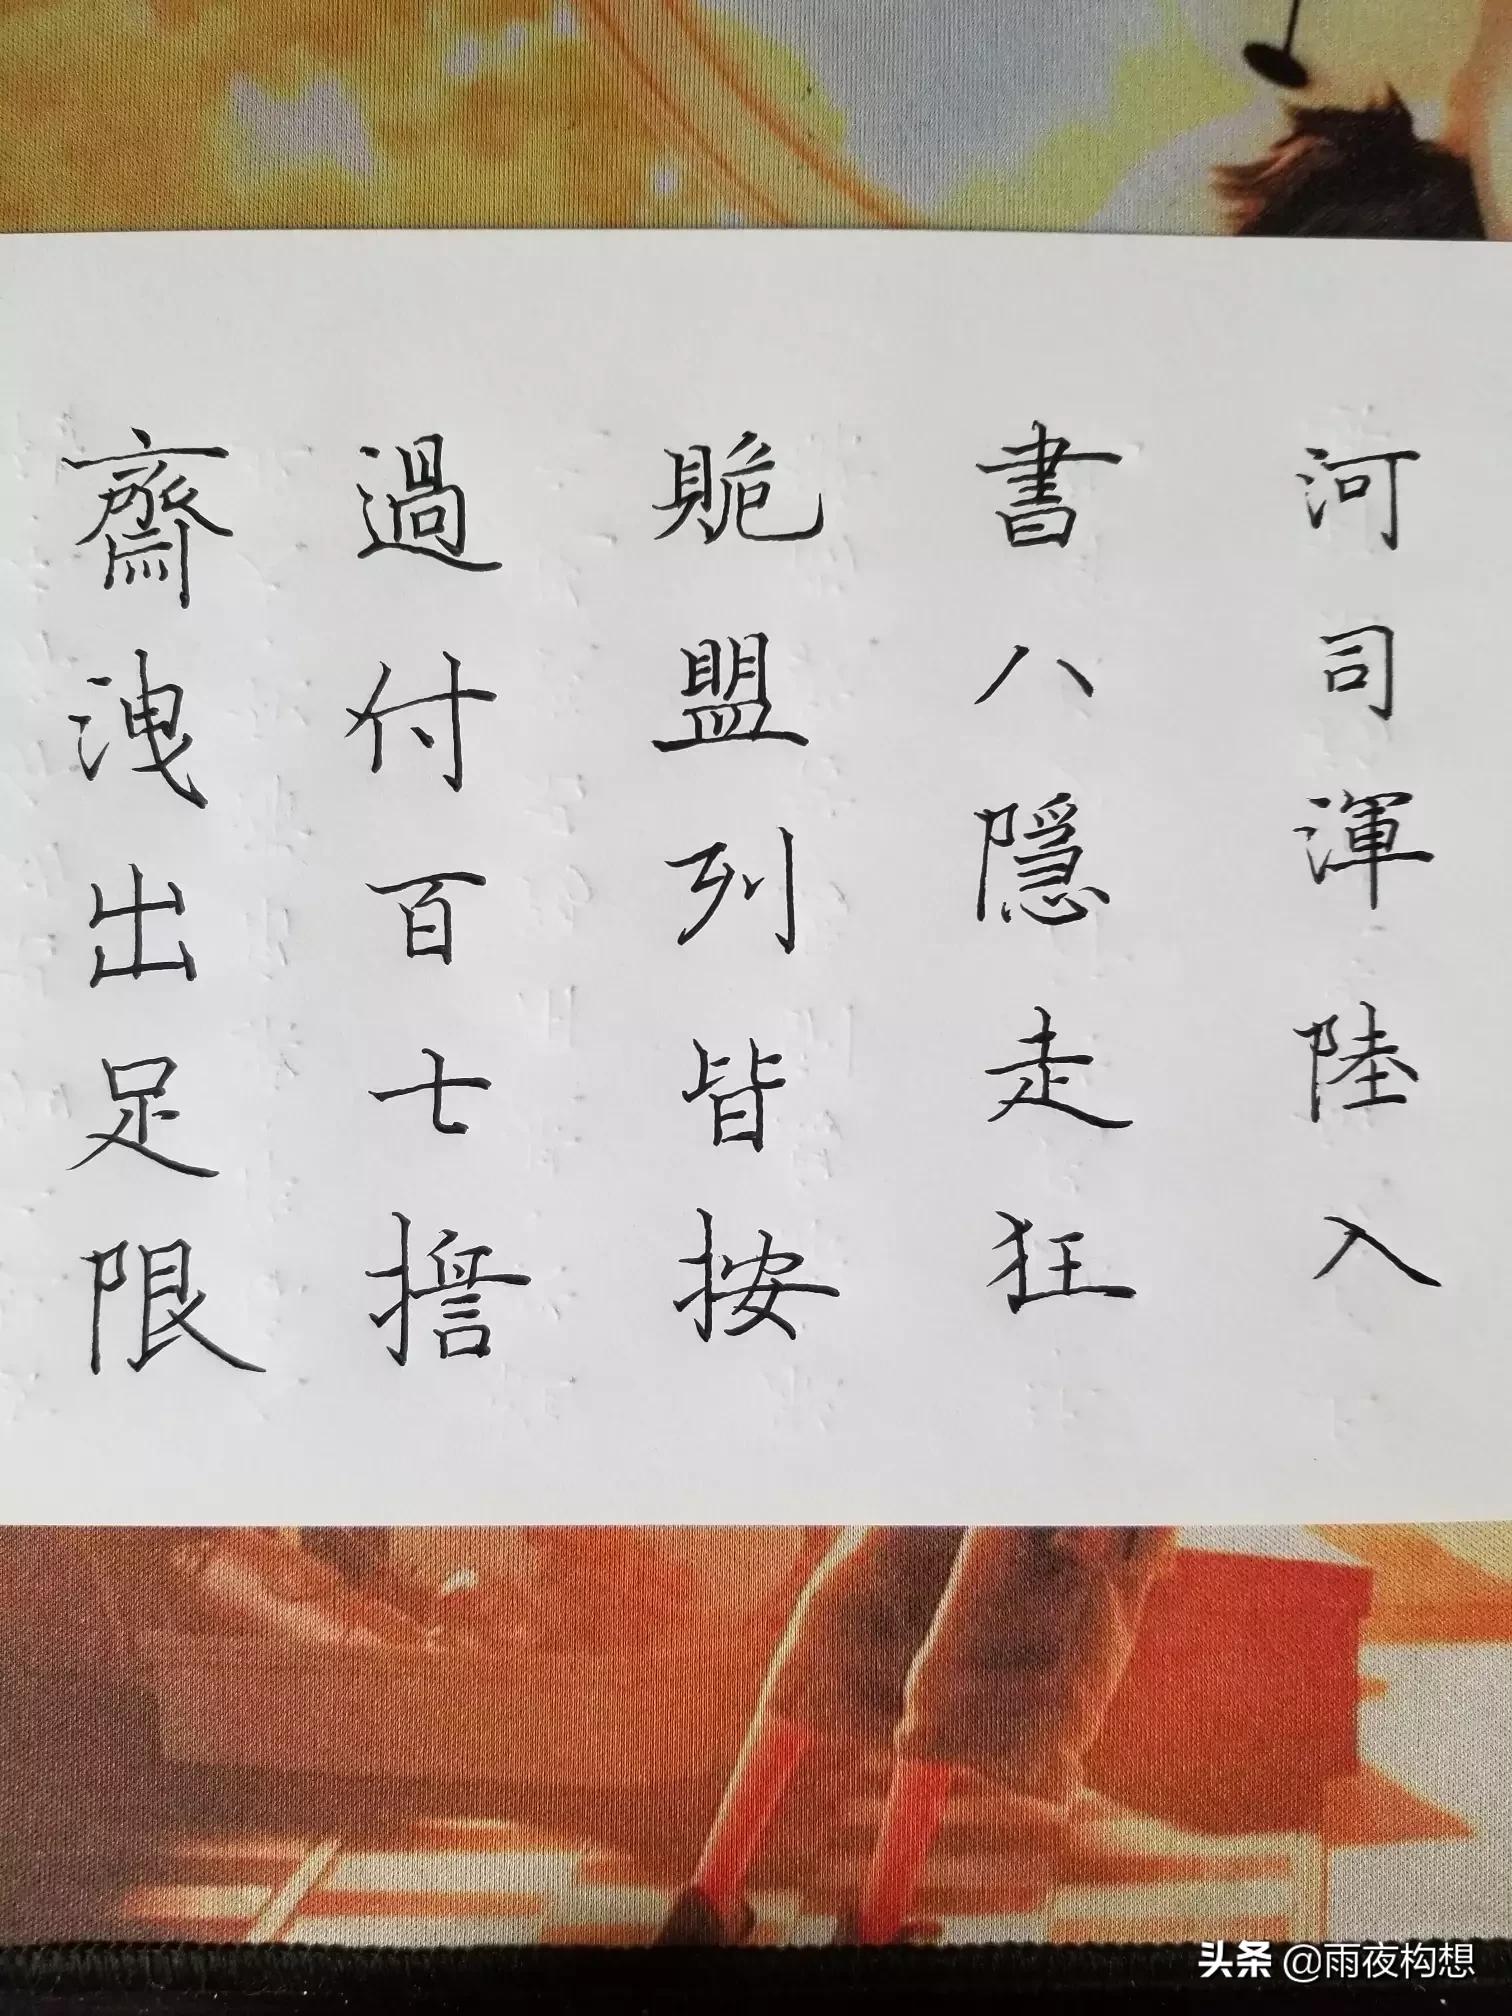 河司渾陸入
書八隱走狂
盟列皆按
過付百士擔
齋洩出足限
头条 @雨夜构想